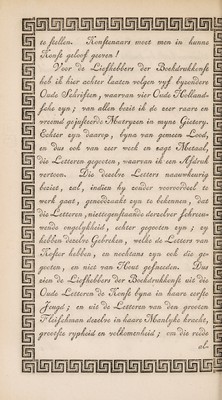 te stellen. Konstenaars moet men in hunne
Konst geloof geeven!
Voor de Liefhebbers der Boekdrukkonst
heb ik hier achter laaten volgen vyf byzondere
Oude Schriften, waarvan vier Oude Holland-
sche zyn; van allen bezit ik de zeer raare en
vreemd gejusteerde Matryzen in myne Gietery.
Echter zyn daarop, byna van gemeen Lood,
en dus ook van zeer week en zagt Metaal,
die Letteren gegooten, waarvan ik een Afdruk
vertoon. Die dezelve Letters naauwkeurig
beziet, zal, indien hy zonder vooroordeel te
werk gaat, genoodzaakt zyn te bekennen, dat
die Letteren, niettegenstaande derzelver schreeu-
wende ongelykheid, echter gegooten zyn; zy
hebben dezelve Gebreken, welke de Letters van
Koster hebben, en nochtans zyn ook die ge-
gooten, en niet van Hout gesneeden. Dus
zien de Liefhebbers der Boekdrukkonst uit die
Oude Letteren de Konst byna in haare eerste
Jeugd; en uit de Letteren van den grooten
Fleischman dezelve in haare Manlyke kracht,
grootste rypheid en volkomenheid; om die rede
al-